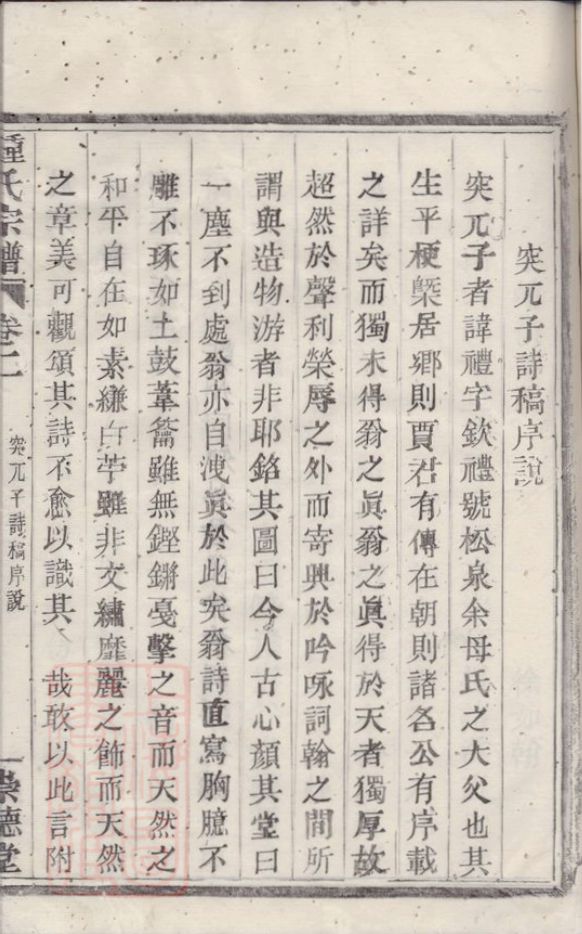 突兀子詩稿序說
突兀子者諱禮字欽禮號松泉余母氏之大父也其
生平梗槩居鄉則賈君有傳在朝則諸名公有序載
之詳矣而獨未得翁之眞翁之眞得於天者獨厚故
超然於聲利榮辱之外而寄興於吟咏詞翰之間所
謂與造物游者非耶銘其圖曰今人古心顏其堂曰
一塵不到處翁亦自洩眞於此矣翁詩直寫胸臆不
雕不琢如土鼓葦籥雖無鏗鏘戞擊之音而天然之
和平自在如素縑白苧雖非文繡靡麗之飾而天然
之章美可觀頌其詩不愈以識其 哉敢以此言附
氏宗譜 卷二 突兀子詩稿序說 一 崇德堂